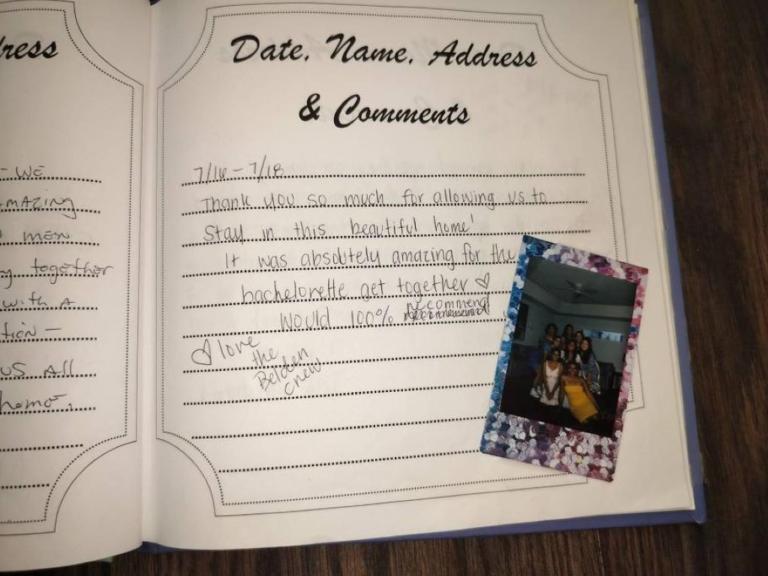 ress
Date, Name, Address
& Comments
- WE
AMAZING
together
with A
tion -
US All
home.
7/16 - 7/18
Thank you so much for allowing us to
stay in this beautiful home!
It was absolutely amazing for the
bachelorette get together ♡
would 100% recommend
♡ love
the
Belden
crew